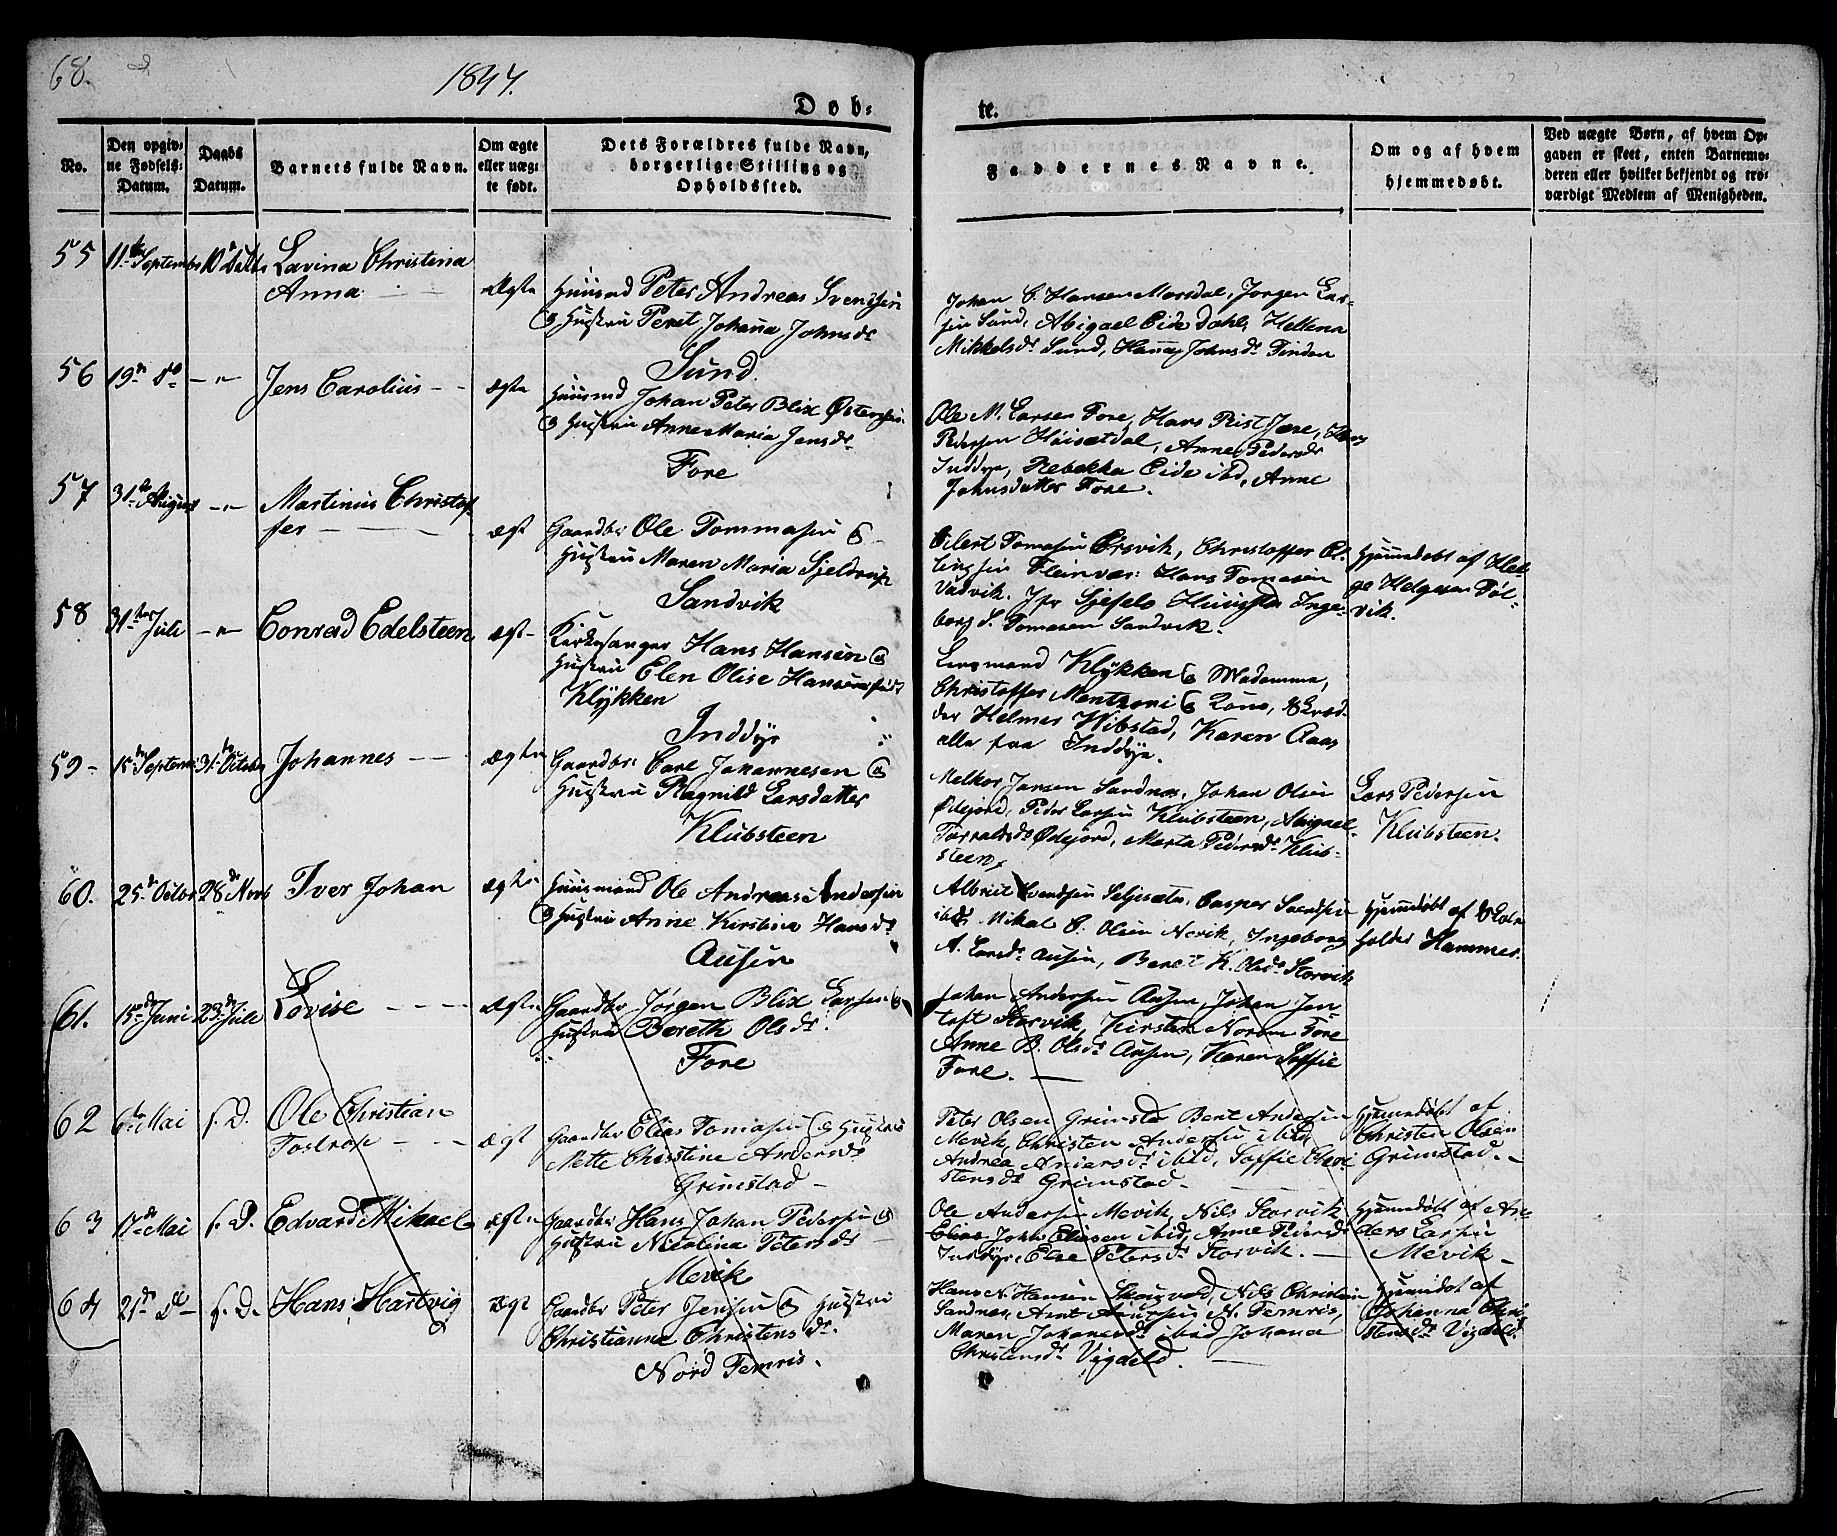 68.
1847.
Døb-
te.
No.
Den opgiv-
ne Fødsels-
Datum.
Daabs
Datum.
Barnets fulde Navn.
Om ægte
eller uæg-
te født.
Dets Forældres fulde Navn,
borgerlige Stilling og
Opholdssted.
Faddernes Navne.
Om og af hvem
hjemmedøbt.
Ved uægte Børn, af hvem Op-
gaven er skeet, enten Barnemo-
deren eller hvilket bekjendt og tro-
værdigt Medlem af Menigheden.
55 11te Septembr 10de Lavina Christina
Anna
Ægte Huusmd Peter Andreas Svendsen
& Hustru Peret Johanna Johnsdr
Sund
Johan C. Hansen Morsdal, Jørgen Lar-
sen Sund, Abigael Eide Dahl, Hellena
Mikkelsdr Sund, Hanna Johnsdr Finden
56 19de Do — " — Jens Carolius — ægte
Huusmd Johan Peter Blix
& Hustru Anne Maria Jensdr
Fore
Ole M. Larsen Fore, Hans Rist Fore,
Pedersen Høisætdal, Anne Pedersdr
Inddyr, Rebekka Eide ibd, Anne
Johnsdatter Fore.
57 31te August — " — Martinus Christof-
fer — ægt
Gaardbr: Ole Tommasen &
Hustru Maren Maria Sjeldrup
Sandvik
Eilert Tomasen Ørsvik, Christoffer El-
lingsen Fleinvær: Hans Tomasen
Vadvik. Jfr Inge-
borg S. Tomasen Sandvik.
Hjemmdøbt af Hel-
ge Helgesen Søl-
vik.
58 31te Juli — " — Conrad Edelsteen ægt-
Kirkesanger Hans Hansen &
Hustru Elen Olise Hansen født
Klykken
Inddyr
Lensmand Klykken & Madamme,
Christoffer Mentzoni & Kone,
Helmer Wibstad, Karen Aas
alle fra Inddyr.
59- 15de Septem 31te October Johannes — ægte
Gaardbr: Carl Johannesen &
Hustru Ragnild Larsdatter
Klubsteen
Melkor Jansen Sandnes, Johan Olsen
Ødejord, Peder Larsen Klubsteen, Abigael
Torvaldsdr Ødejord, Marta Pedersdr Klub-
steen
Lars Pedersen
Klubsteen.
60. 25de Octobr 28de Novb Iver Johan ægte
Huusmand Ole Andreas Andersen
& Hustru Anne Kirstina Hansdr
Ausen
Albrict Svendsen Seljesæter, Casper Svendsen
ibd, Mikal C. Olsen Nevik, Ingeborg
A. Larsdr Ausen, Beret K. Olsdr Storvik
Hjemmdøbt af Skole-
holder Hammer.
61. 15de Juni 25de Juli Lovise — ægte
Gaardbr Jørgen Blix Larsen &
Hustru Bereth Olsdr.
Fore
Johan Andersen Ausen, Johan Jen-
toft Storvik, Kirsten Norum Fore
Anne B. Olsdr Ausen, Karen Soffie
Fore. —
62 6te Mai s. D. Ole Christian
Tostrop — ægt
Gaardbr Elias Tomasen & Hustru
Mette Christine Andersdr
Grimstad —
Peter Olsen Grimstad Bent Andersen
Mevik, Christen Andersen ibid,
Andrea Andersdr ibid, Soffie Chri
stensdr Grimstad. —
Hjemmdøbt af
Christen Olsen
Grimstad. —
63 17de Mai s. D. Edvard Mikael ægte
Gaardbr Hans Johan Pedersen &
Hustru Nicolina Petersdr
Mevik
Ole Andersen Mevik, Nils Storvik
Elias John Eliasen ibid, Anne Pedersdr
Inddyr, Else Petersdr Storvik. —
Hjemmdøbt af An-
ders Larsen
Mevik —
64 21de Do — s. D. Hans Hartvig ægt
Gaardbr Peter Jensen & Hustru
Christianna Christensdr.
Nord Femris.
Hans N. Hansen Skogvold, Nils Christen
Sandnes, Arnt Andersen N. Femris,
Maren Johansdr ibid, Johana
Christensdr Vigdeld. —
Hjemmdøbt af
Johanna Chri-
stensdr Vigdeld.